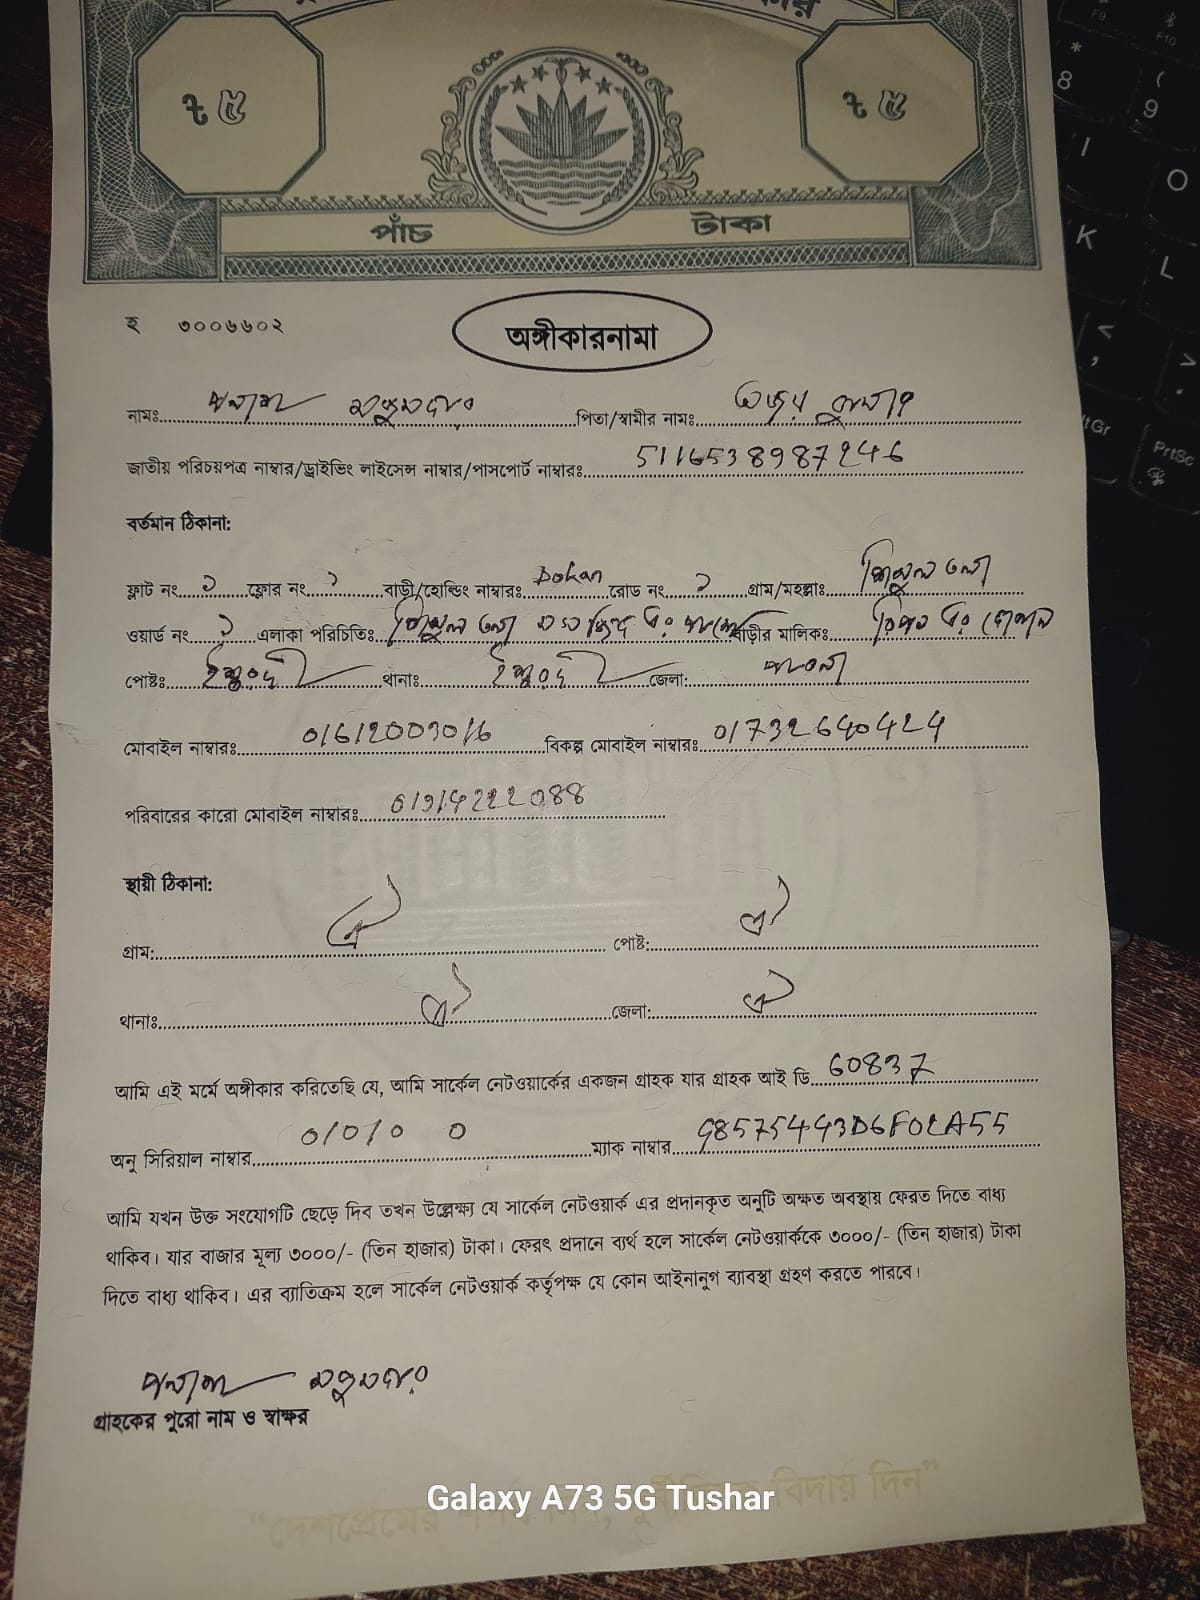 ৳ ৫ ৳ ৫
পাঁচ টাকা
হ ৩০০৬৬০২
অঙ্গীকারনামা
নামঃ পলাশ মজুমদার পিতা/স্বামীর নামঃ কুমার
জাতীয় পরিচয়পত্র নাম্বার/ড্রাইভিং লাইসেন্স নাম্বার/পাসপোর্ট নাম্বারঃ 5116538987246
বর্তমান ঠিকানা:
ফ্লাট নং ফ্লোর নং বাড়ী/হোল্ডিং নাম্বারঃ Dokan রোড নং গ্রাম/মহল্লাঃ শিমুল তলা
ওয়ার্ড নং এলাকা পরিচিতিঃ শিমুল তলা মসজিদ এর পাশে বাড়ীর মালিকঃ এর দোকান
পোষ্টঃ ঈশ্বরদী থানাঃ ঈশ্বরদী জেলা: পাবনা
মোবাইল নাম্বারঃ বিকল্প মোবাইল নাম্বারঃ 01732640424
পরিবারের কারো মোবাইল নাম্বারঃ
স্থায়ী ঠিকানা:
গ্রাম: ঐ পোষ্ট: ঐ
থানাঃ ঐ জেলা: ঐ
আমি এই মর্মে অঙ্গীকার করিতেছি যে, আমি সার্কেল নেটওয়ার্কের একজন গ্রাহক যার গ্রাহক আই ডি 60837
অনু সিরিয়াল নাম্বার 01010 0 ম্যাক নাম্বার
আমি যখন উক্ত সংযোগটি ছেড়ে দিব তখন উল্লেক্ষ্য যে সার্কেল নেটওয়ার্ক এর প্রদানকৃত অনুটি অক্ষত অবস্থায় ফেরত দিতে বাধ্য
থাকিব। যার বাজার মূল্য ৩০০০/- (তিন হাজার) টাকা। ফেরৎ প্রদানে ব্যর্থ হলে সার্কেল নেটওয়ার্ককে ৩০০০/- (তিন হাজার) টাকা
দিতে বাধ্য থাকিব। এর ব্যাতিক্রম হলে সার্কেল নেটওয়ার্ক কর্তৃপক্ষ যে কোন আইনানুগ ব্যাবস্থা গ্রহণ করতে পারবে।
পলাশ মজুমদার
গ্রাহকের পুরো নাম ও স্বাক্ষর
Galaxy A73 5G Tushar